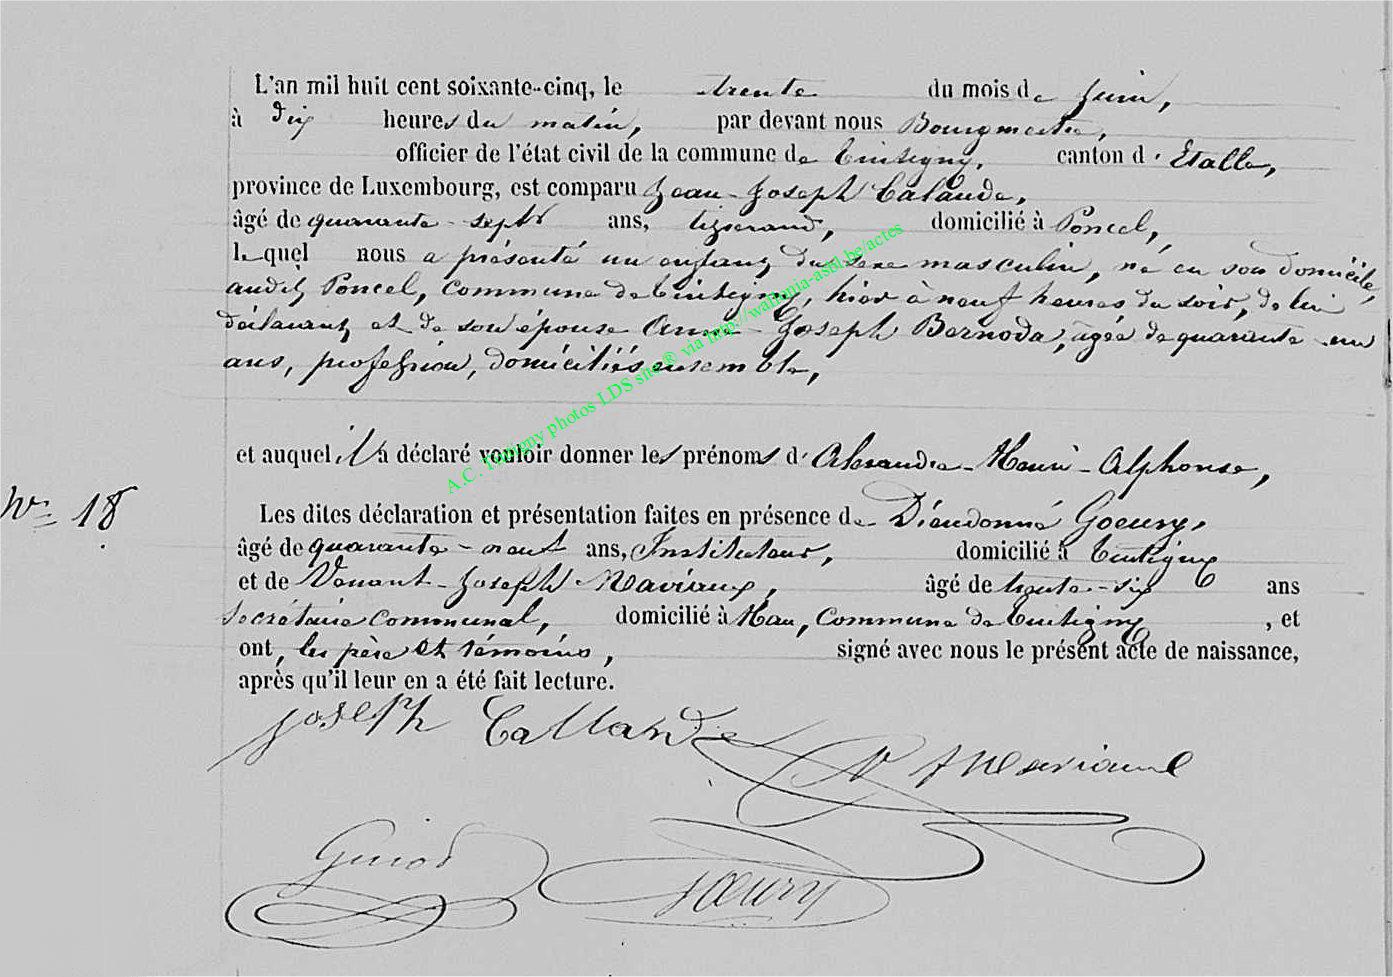 L'an mil huit cent soixante-cinq, le trente du mois de juin,
à dix heures du matin, par devant nous Bourgmestre,
officier de l'état civil de la commune de Tintigny, canton d'Etalle,
province de Luxembourg, est comparu Jean-Joseph Calande,
âgé de quarante-sept ans, tisserand, domicilié à Poncel,
lequel nous a présenté un enfant du sexe masculin, né en son domicile,
audit Poncel, commune de Tintigny, hier à neuf heures du soir, de lui
déclarant, et de son épouse Anne-Joseph Bernoda, agée de quarante-un
ans, profession, domiciliés ensemble,
et auquel il a déclaré vouloir donner les prénoms d'Alexandre-Henri-Alphonse,
N° 18
Les dites déclaration et présentation faites en présence de Dieudonné Goeury,
âgé de quarante-neuf ans, Instituteur, domicilié à Tintigny
et de Venant-Joseph Maviaux, âgé de trente-six ans
secrétaire communal, domicilié à Han, commune de Tintigny, et
ont, les père et témoins, signé avec nous le présent acte de naissance,
après qu'il leur en a été fait lecture.
Joseph Callande
V J Maviaux
Guiot
Goeury
A.C. Tintigny photos LDS site® via http://wallonia-asbl.be/actes